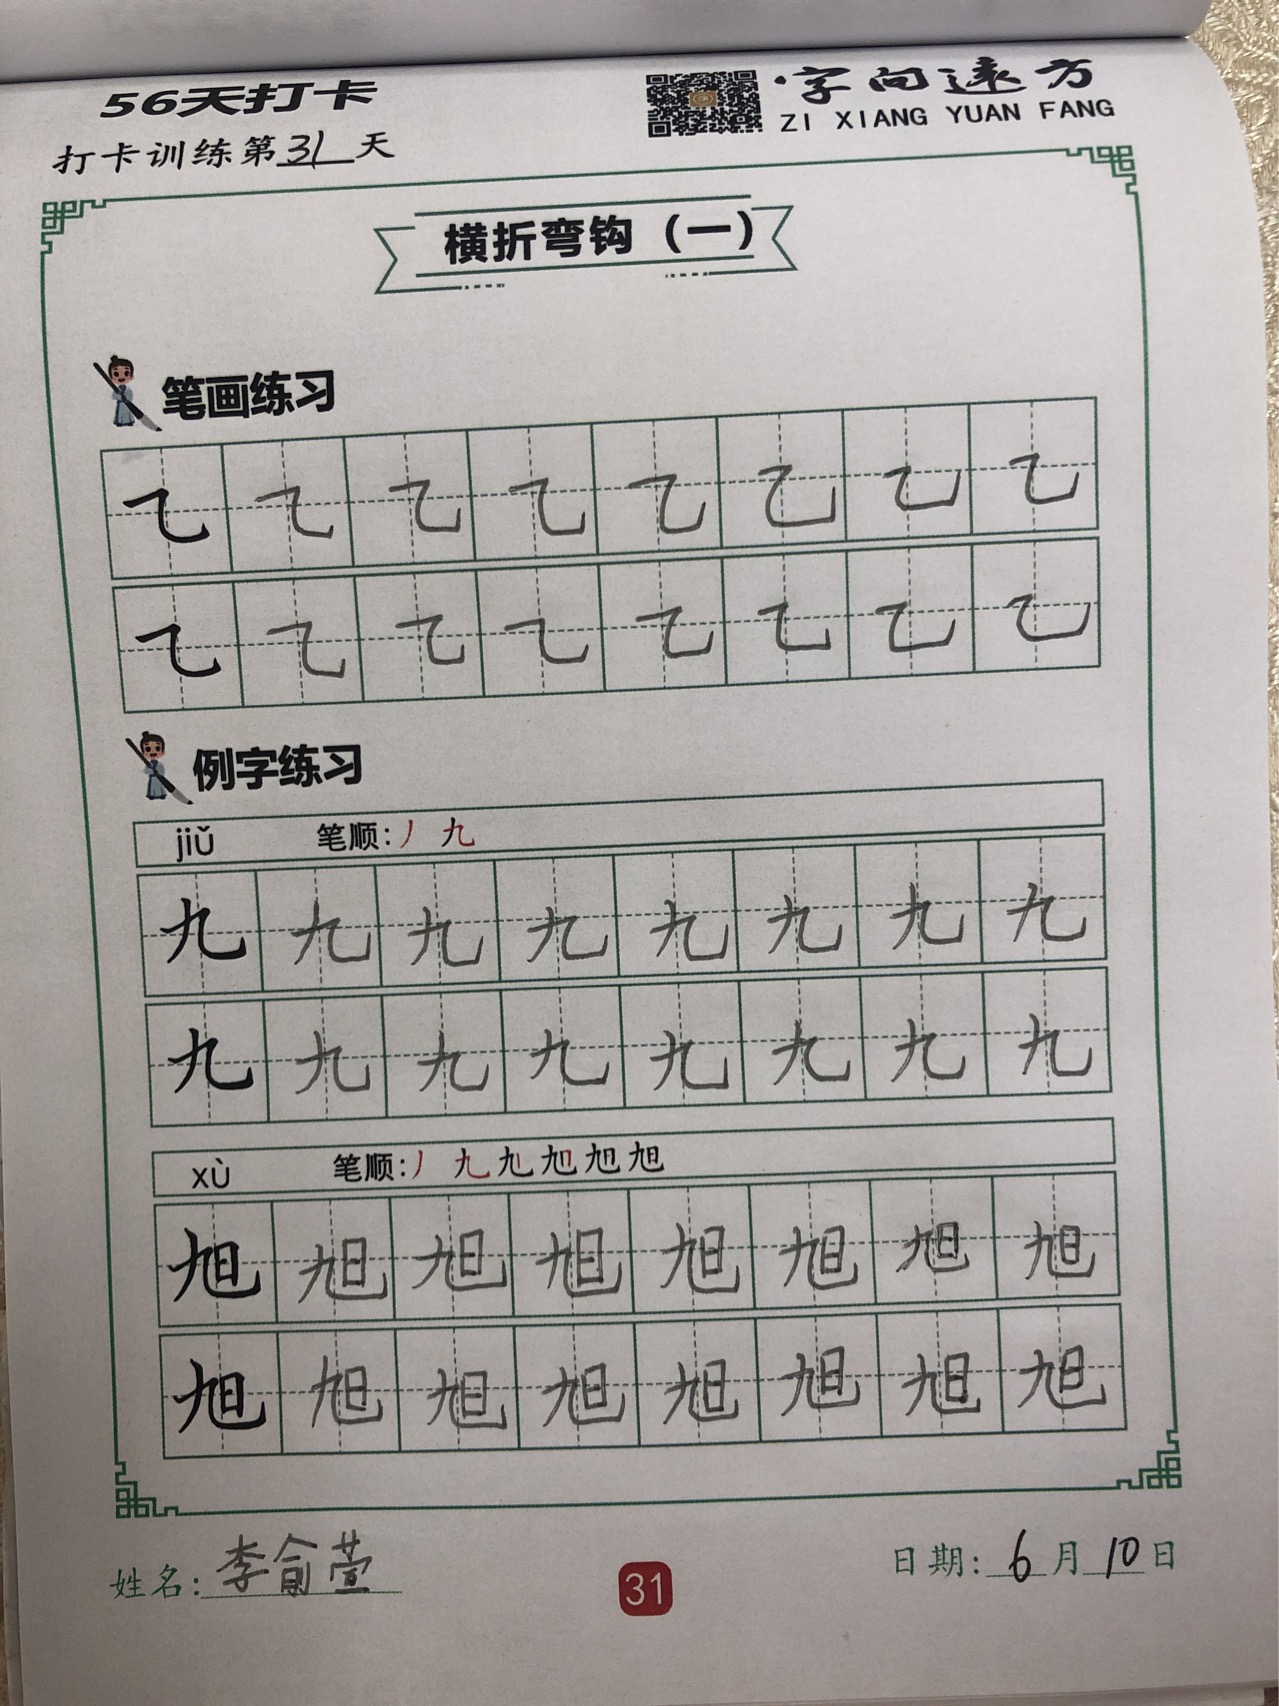 56天打卡
字向远方
ZI XIANG YUAN FANG
打卡训练第31天
横折弯钩（一）
笔画练习
㇈㇈㇈㇈㇈㇈㇈㇈
㇈㇈㇈㇈㇈㇈㇈㇈
例字练习
jiǔ 笔顺:丿九
九九九九九九九九
九九九九九九九九
xù 笔顺:丿九 旭
旭旭旭旭旭旭旭旭
旭旭旭旭旭旭旭旭
姓名:李俞萱
31
日期:6月10日